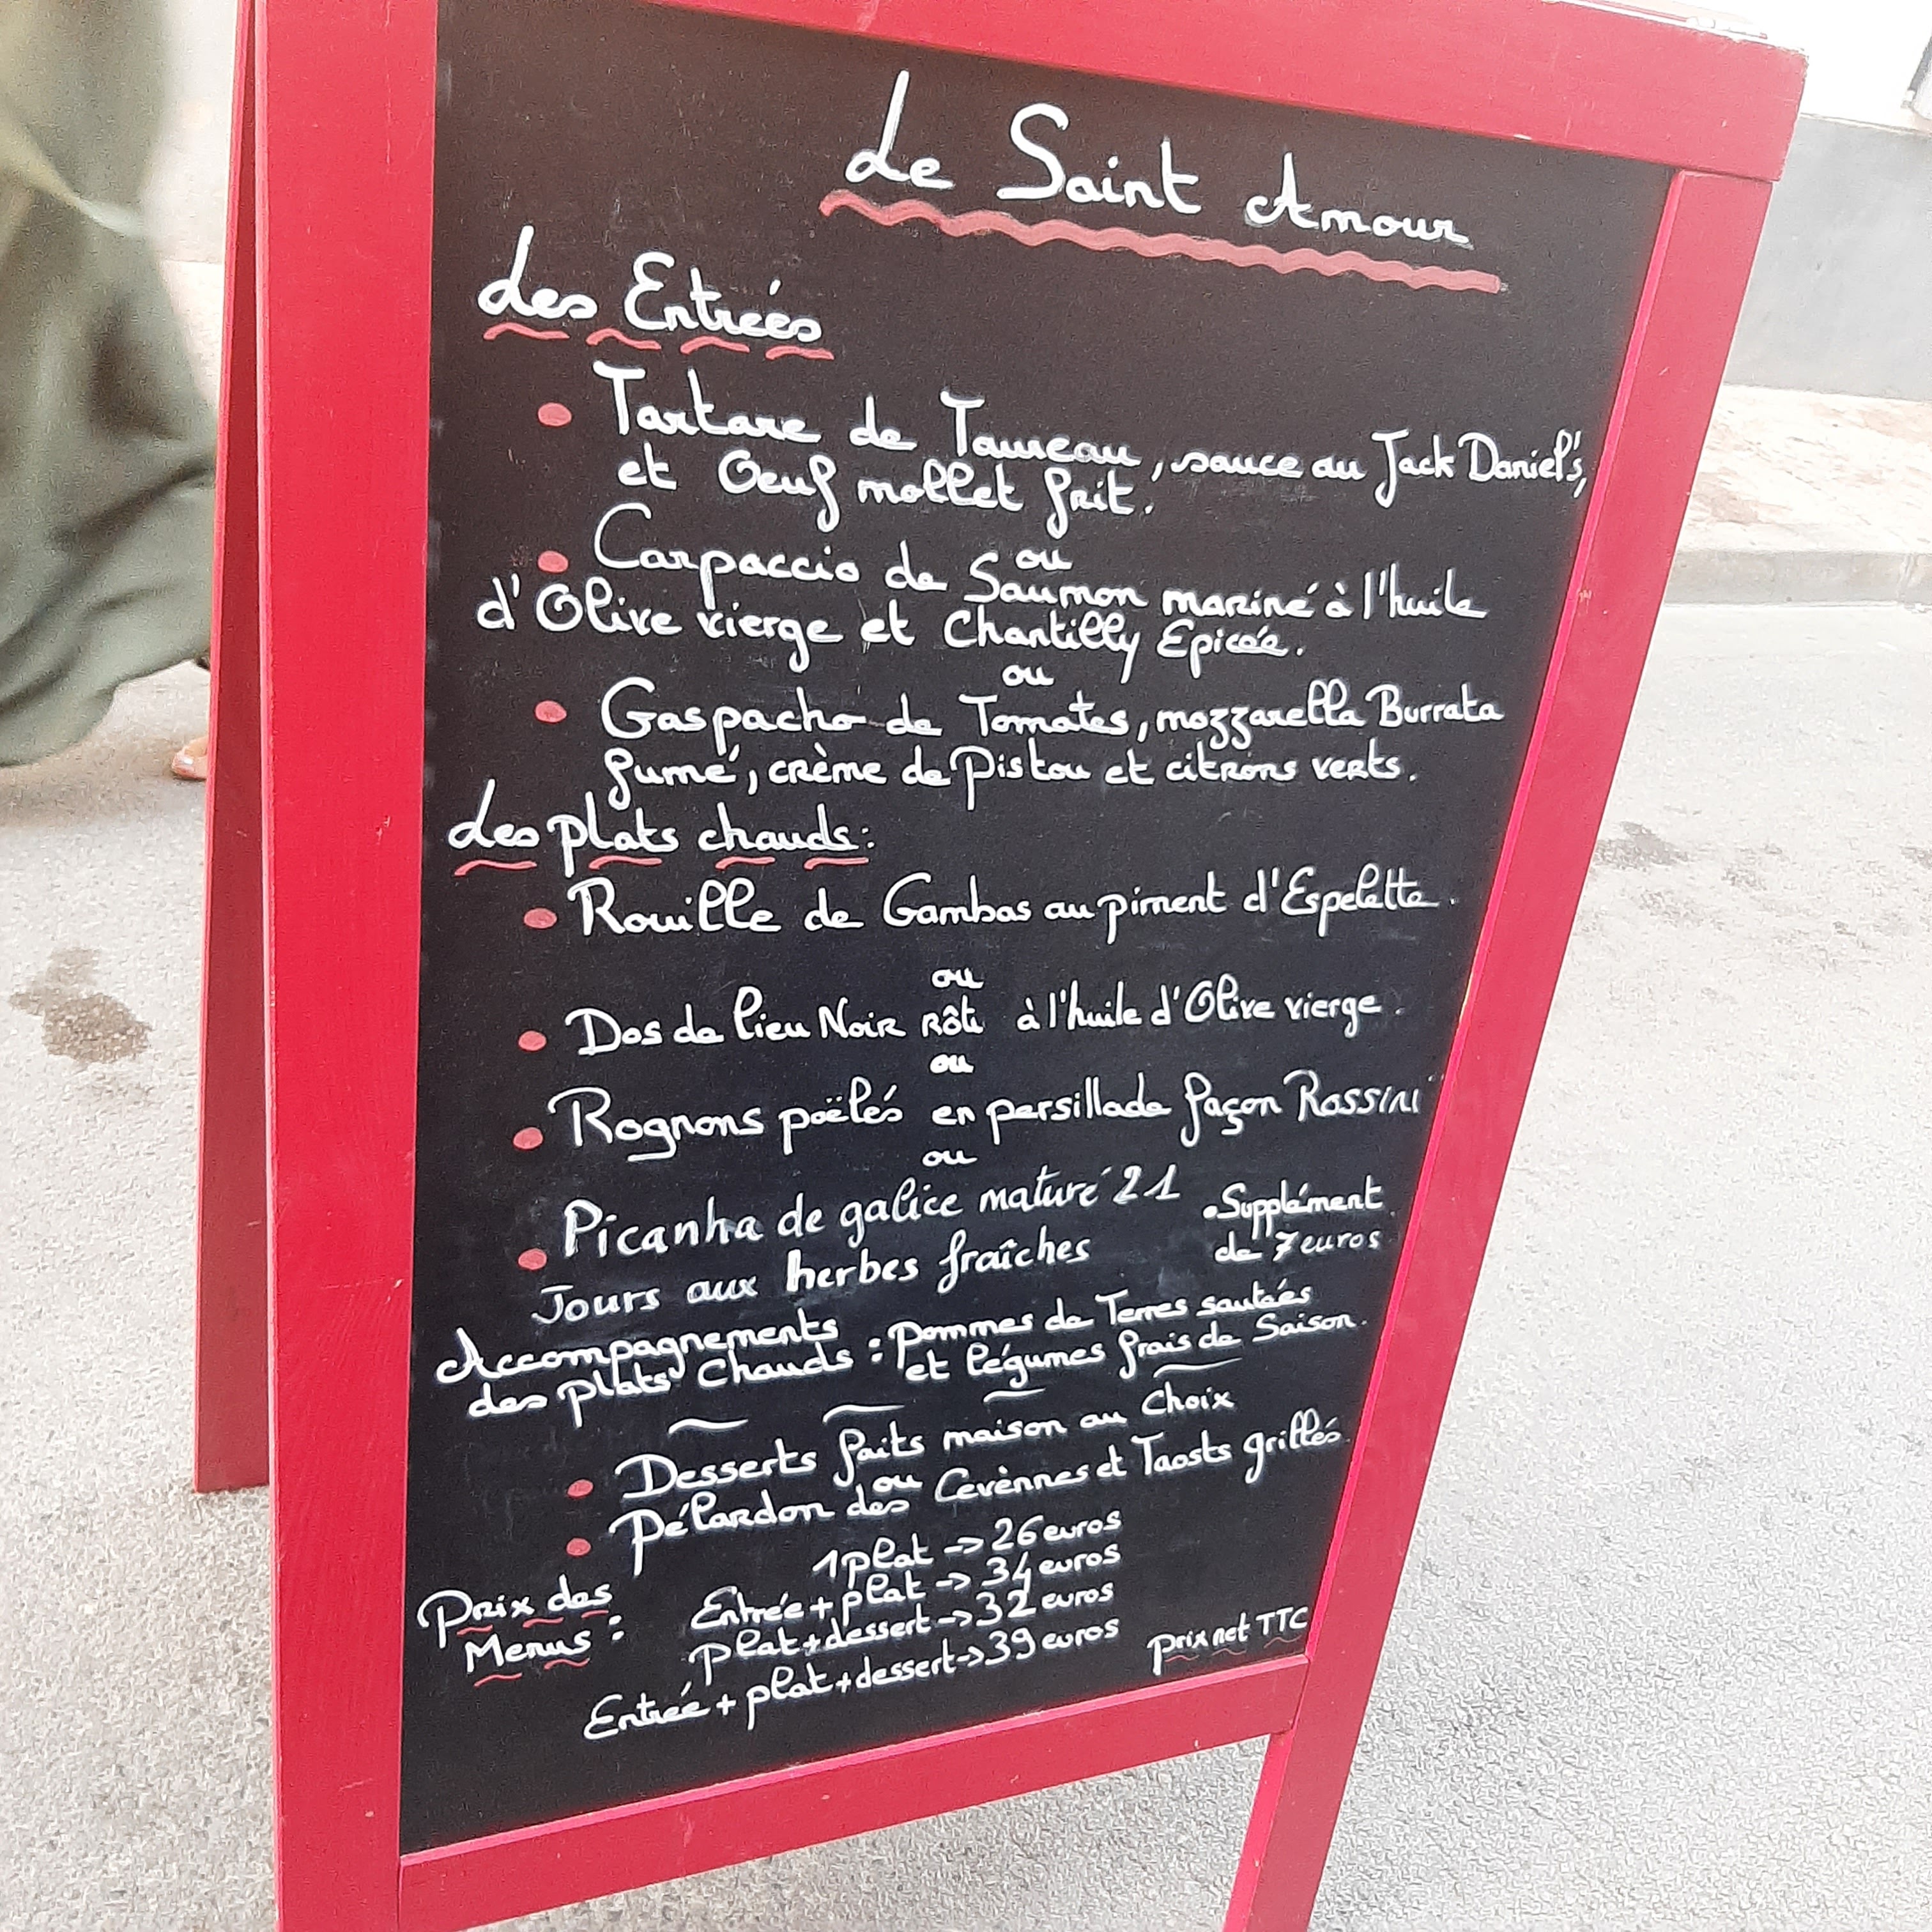 Le Saint Amour
Les Entrées
Tartare de Taureau, sauce au Jack Daniel's,
et Oeuf mollet frit.
ou
Carpaccio de Saumon mariné à l'huile
d'Olive vierge et Chantilly Epicée.
ou
Gaspacho de Tomates, mozzarella Burrata
fumé, crème de Pistou et citrons verts.
Les plats chauds:
Rouille de Gambas au piment d'Espelette.
ou
Dos de lieu Noir Rôti à l'huile d'Olive vierge.
ou
Rognons poëlés en persillade façon Rossini
ou
Picanha de galice maturé 21
Jours aux herbes fraîches
Supplément
de 7 euros
Accompagnements
des plats Chauds : Pommes de Terres sautées
et légumes frais de Saison.
Desserts faits maison au Choix
ou
Pélardon des Cevènnes et Taosts grillés.
Prix des
Menus :
1 plat -> 26 euros
Entrée + plat -> 34 euros
plat + dessert -> 32 euros
Entrée + plat + dessert -> 39 euros
prix net TTC